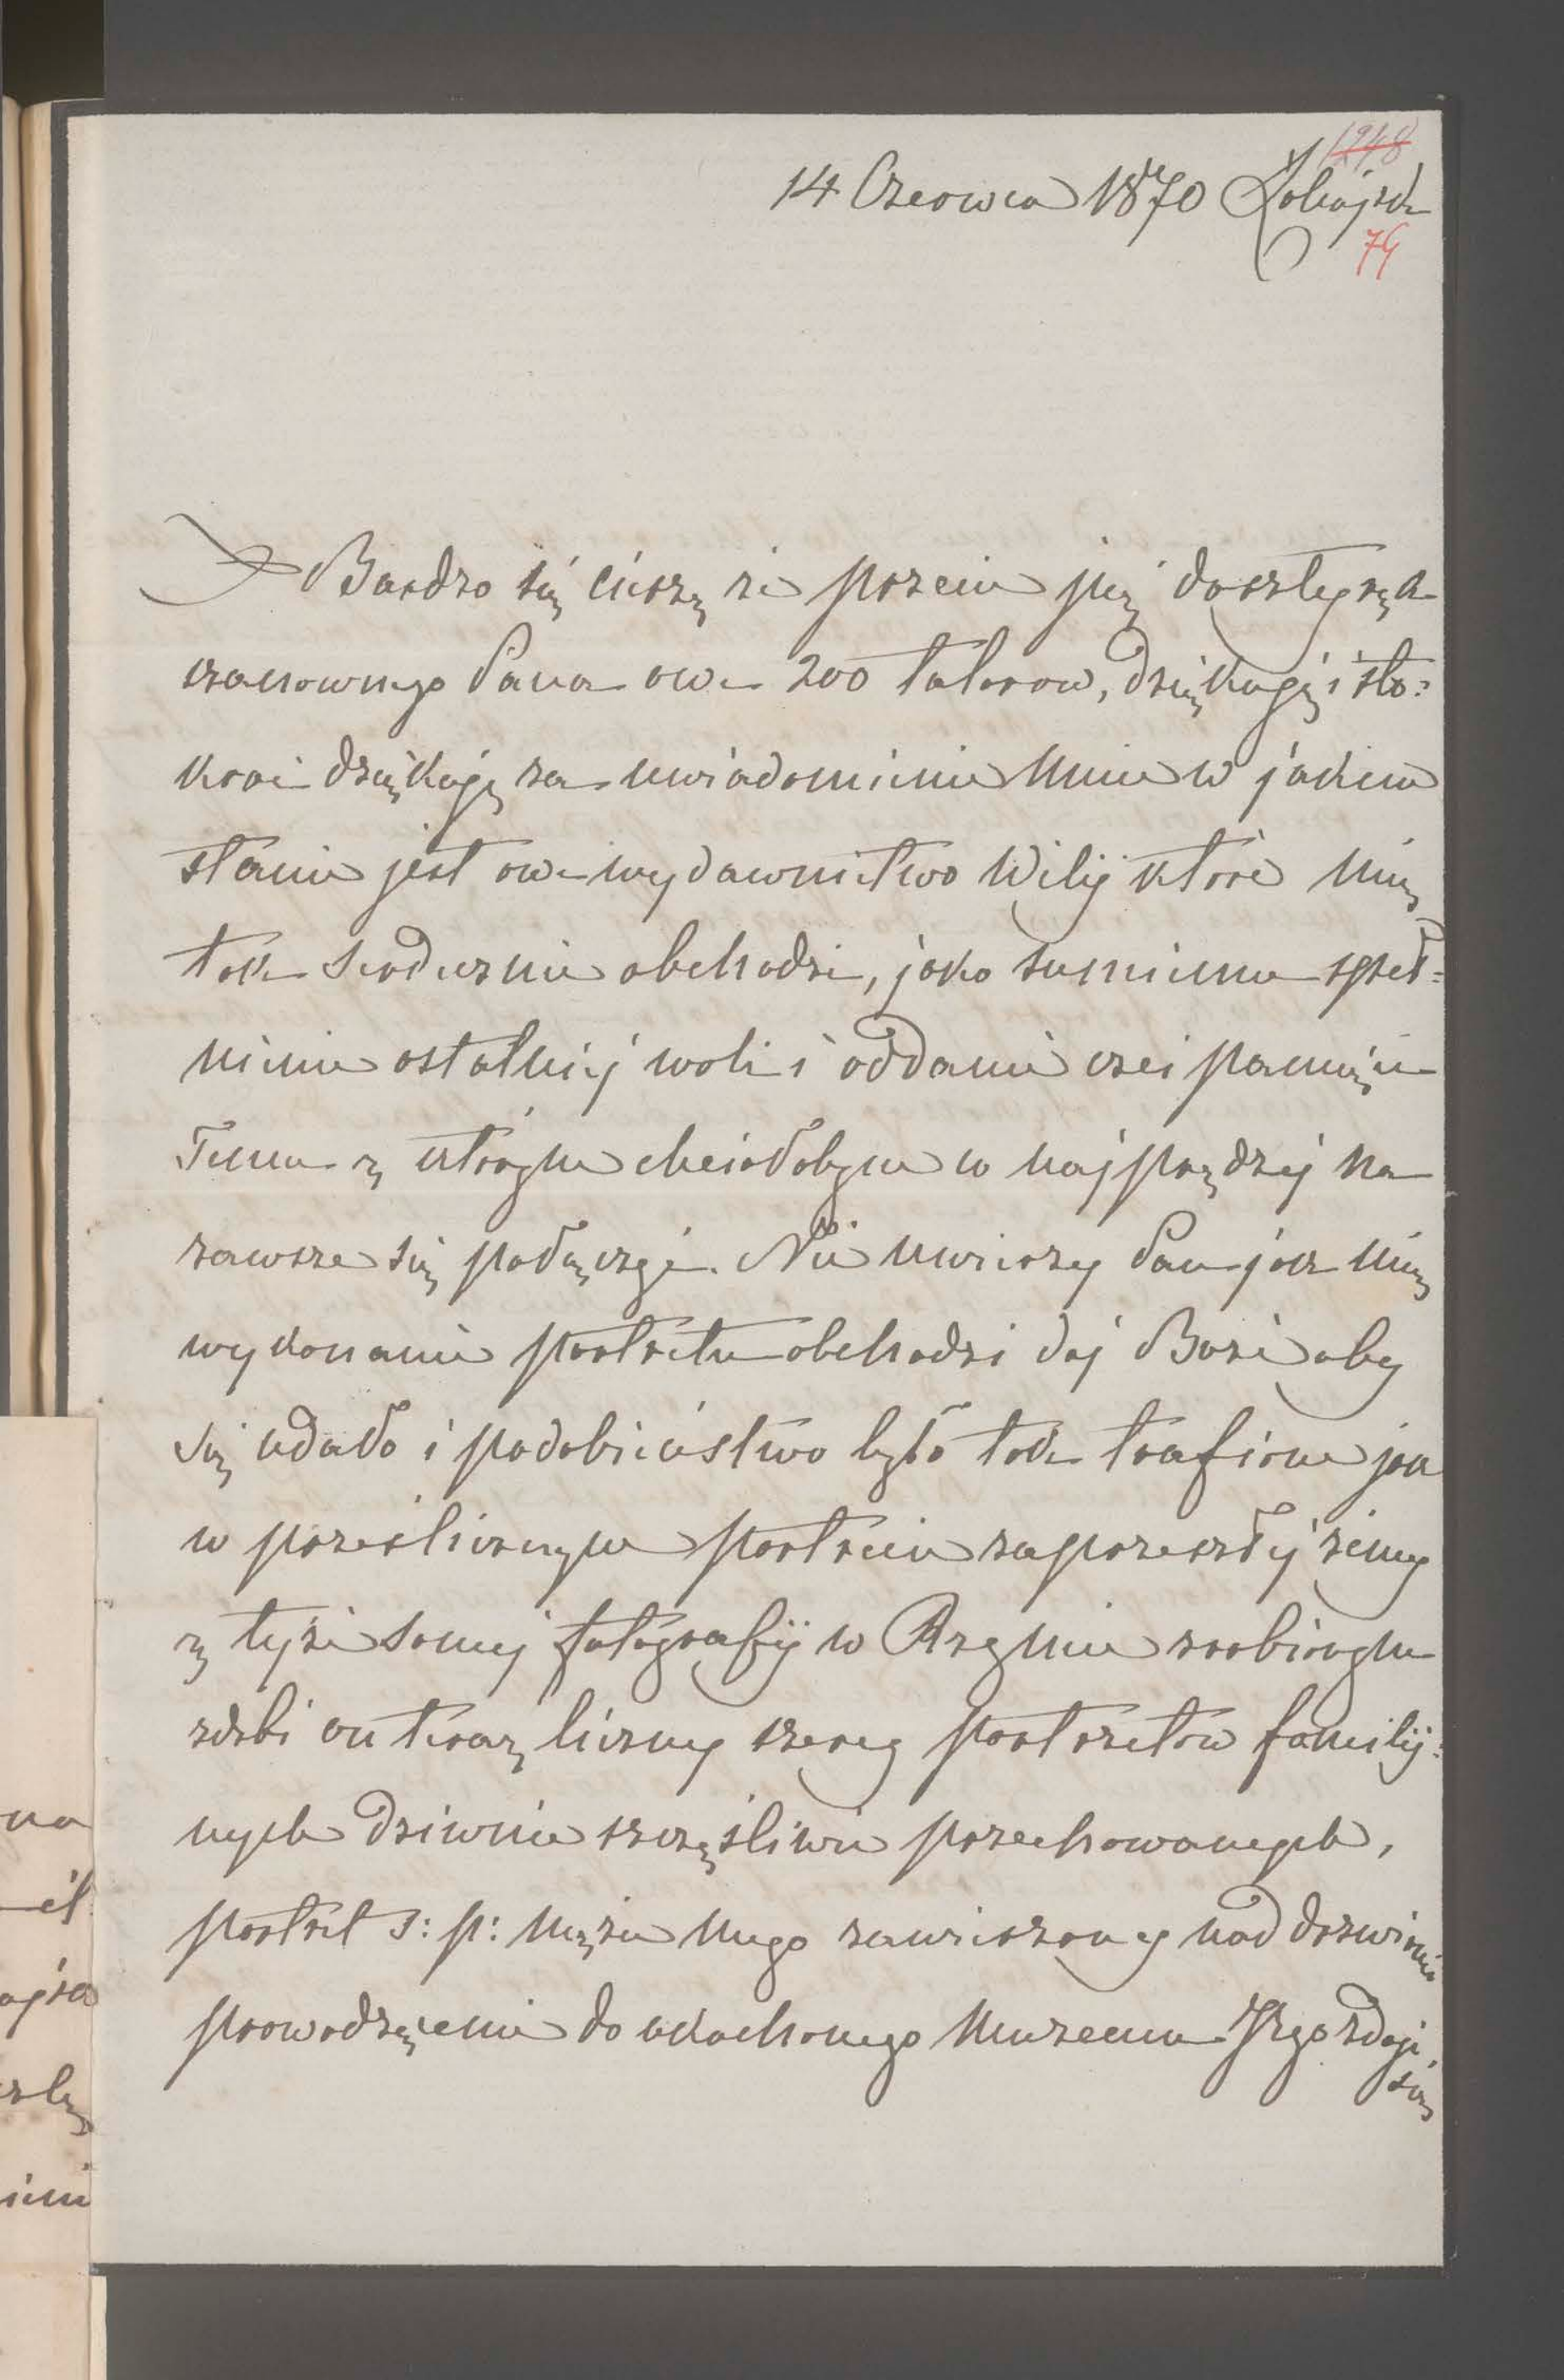 1948
14 Czerwca 1870 Łohojsk
79
Bardzo się cieszę że przecie już doszły rąk
szanownego Pana owe 200 talarów, dziękuję i sto=
kroć dziękuję za uwiadomienie mnie w jakim
stanie jest owe wydawnictwo Wilij które mię
tak serdecznie obchodzi, jako sumienne speł=
nienie ostatniej woli i oddanie czci pamięci
Temu z którym chciałabym w najprędzej na
zawsze się połączyć. Nie uwierzy Pan jak mię
wykonanie portretu obchodzi daj Boże aby
się udało i podobieństwo było tak trafione jak
w prześlicznym portrecie zaprzeszłej zimy
z tejże samej fotografij w Rzymie zrobionym
zdobi on teraz liczny szereg portretów familij=
nych dziwnie szczęśliwie przechowanych,
portret ś: p: męża mego zawieszony nad drzwiami
prowadzącemi do ukochanego Muzeum Jego zdaje
się
na
ęła
imi